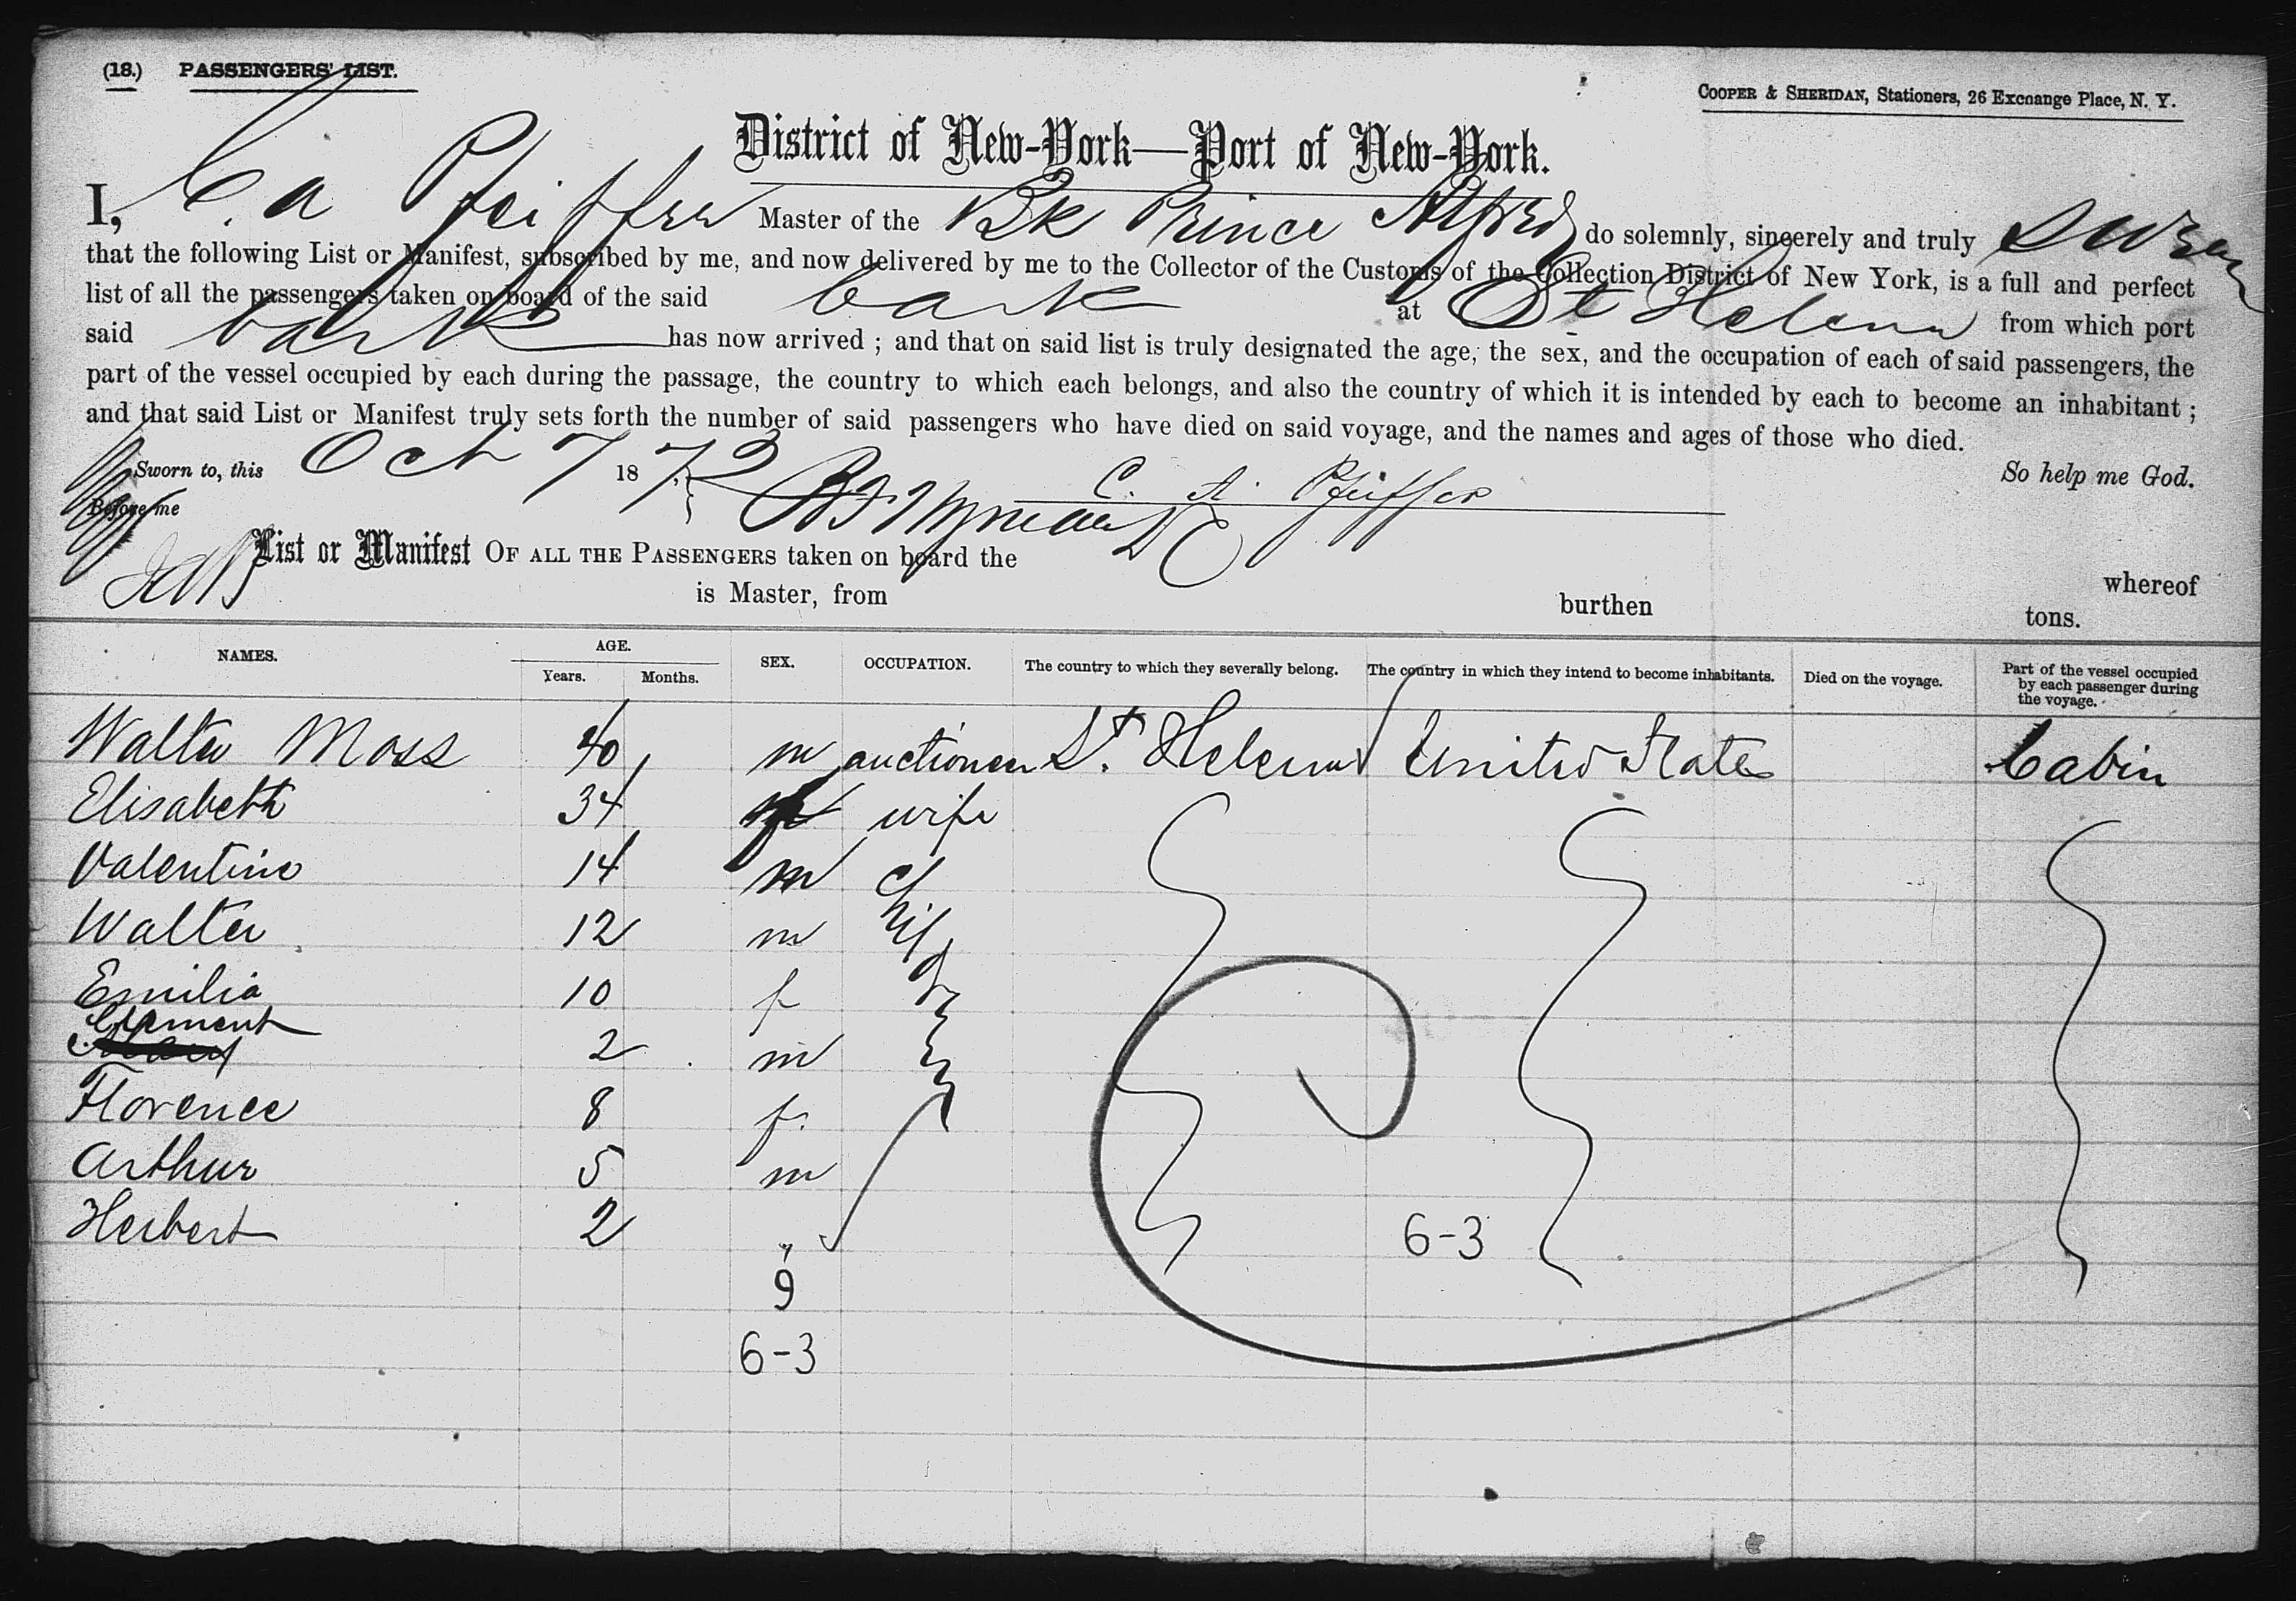 (18.) PASSENGERS' LIST.
COOPER & SHERIDAN, Stationers, 26 Exchange Place, N. Y.
District of New-York—Port of New-York.
I, C. A Pfeiffer Master of the Bk Prince Alfred do solemnly, sincerely and truly swear
that the following List or Manifest, subscribed by me, and now delivered by me to the Collector of the Customs of the Collection District of New York, is a full and perfect
list of all the passengers taken on board of the said bark at St Helena from which port
said bark has now arrived ; and that on said list is truly designated the age, the sex, and the occupation of each of said passengers, the
part of the vessel occupied by each during the passage, the country to which each belongs, and also the country of which it is intended by each to become an inhabitant ;
and that said List or Manifest truly sets forth the number of said passengers who have died on said voyage, and the names and ages of those who died.
Sworn to, this Oct 7 1873 So help me God.
Before me C. A. Pfeiffer
List or Manifest OF ALL THE PASSENGERS taken on board the whereof
is Master, from burthen tons.
NAMES. AGE. Years. Months. SEX. OCCUPATION. The country to which they severally belong. The country in which they intend to become inhabitants. Died on the voyage. Part of the vessel occupied by each passenger during the voyage.
Walter Moss 40 m auctioneer St. Helena United States Cabin
Elisabeth 34 f wife
Valentine 14 m children
Walter 12 m
Emilia 10 f
Clement 2 m
Florence 8 f.
Arthur 5 m
Herbert 2 "
6-3
9
6-3